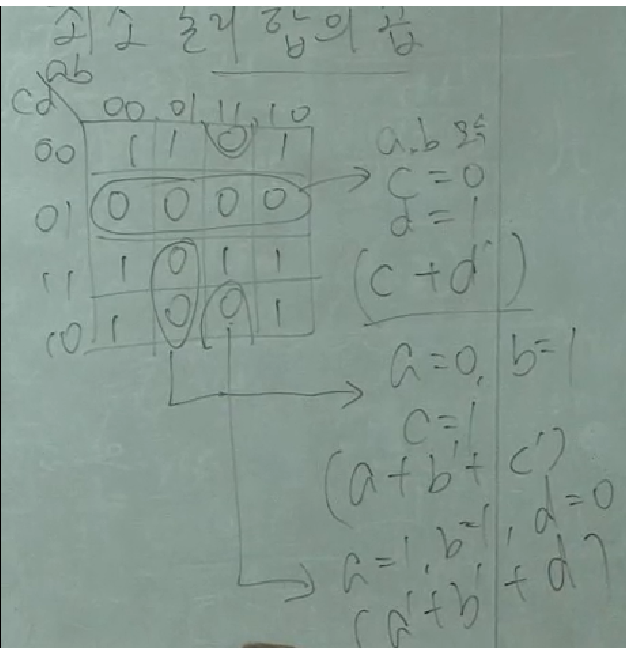 최소 논리 합의 곱
ab
cd 00 01 11 10
00 1 1 0 1
01 0 0 0 0
11 1 0 1 1
10 1 0 0 1
a, b
c = 0
d = 1
(c + d')
a = 0, b = 1
c = 1
(a + b' + c')
a = 1, b = 1, d = 0
(a' + b' + d)